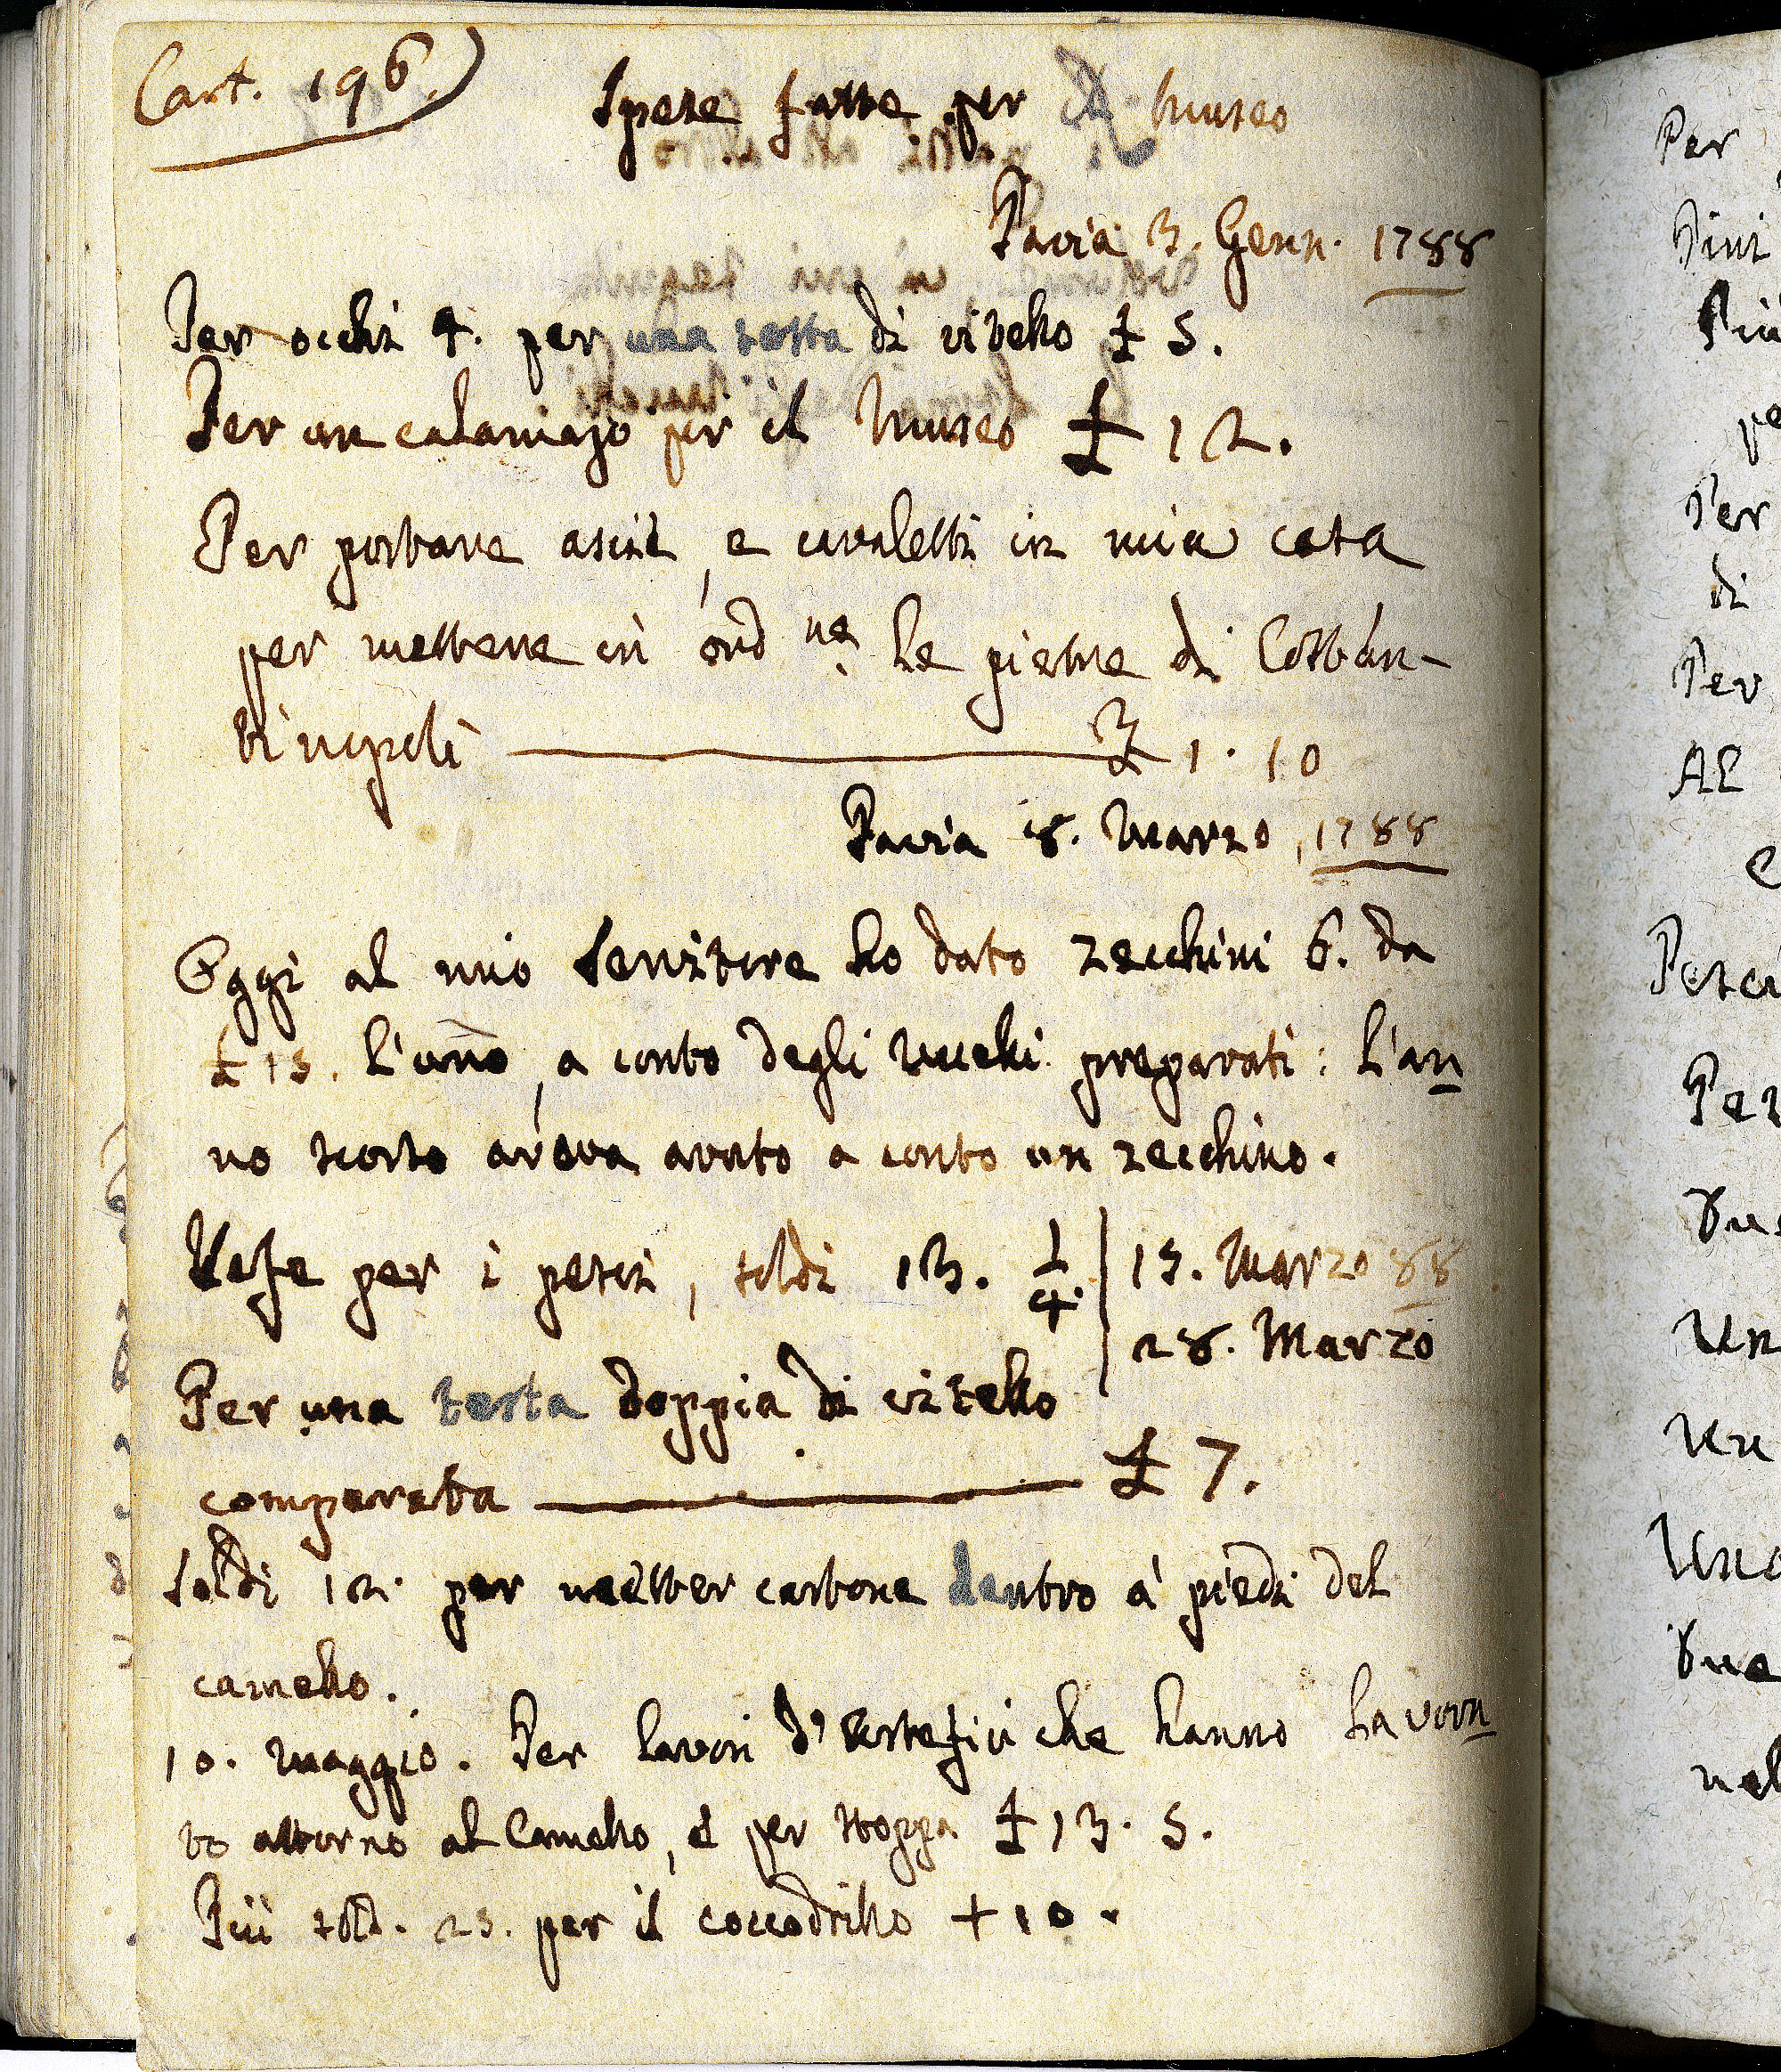 Cart. 196.)
Spese fatte per il Museo
Pavia 3. Genn. 1788
Per occhi 4. per una testa di vitello £ 5.
Per un calamajo per il Museo £ 12.
Per portare assi, e cavaletti in mia casa
per mettere in ord.ne le pietre di Costan-
tinopoli £ 1. 10
Pavia 8. Marzo, 1788
Oggi al mio Servitore ho dato zecchini 6. da
£ 15. l'uno, a conto degli Uccelli preparati: l'an
no scorso aveva avuto a conto un zecchino.
Refe per i pesci, soldi 13. 1/4. | 15. Marzo 88
28. Marzo
Per una testa doppia di vitello
comparata £ 7.
Soldi 12. per metter carbone dentro a' piedi del
camello.
10. Maggio. Per lavori d'Artefici che hanno Lavora
to attorno al Camello, e per stoppa £ 13. 5.
Più sold. 25. per il coccodrillo + 10.
Per
Più
pe
Per
di
Per
Al
Pesci
Per
Un
Un
Due
nel